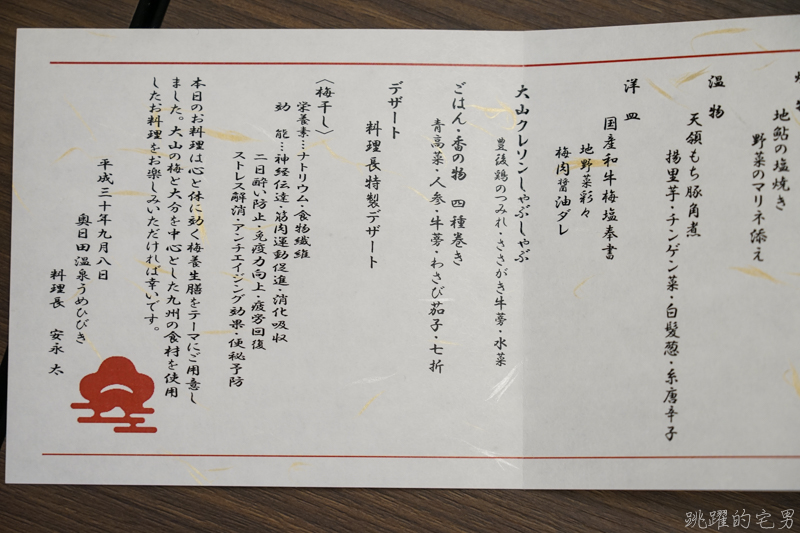 地鮎の塩焼き
野菜のマリネ添え
温物
天領もち豚角煮
揚里芋・チンゲン菜・白髪葱・糸唐辛子
洋皿
国産和牛梅塩奉書
地野菜彩々
梅肉醤油ダレ
大山クレソンしゃぶしゃぶ
豊後鶏のつみれ・ささがき牛蒡・水菜
ごはん・香の物 四種巻き
青高菜・人参・牛蒡・わさび茄子・七折
デザート
料理長特製デザート
〈梅干し〉
栄養素…ナトリウム・食物繊維
効 能…神経伝達・筋肉運動促進・消化吸収
二日酔い防止・免疫力向上・疲労回復
ストレス解消・アンチエイジング効果・便秘予防
本日のお料理は心と体に効く梅養生膳をテーマにご用意し
ました。大山の梅と大分を中心とした九州の食材を使用
したお料理をお楽しみいただければ幸いです。
平成三十年九月八日
奥日田温泉うめひびき
料理長 安永 太
跳躍的宅男